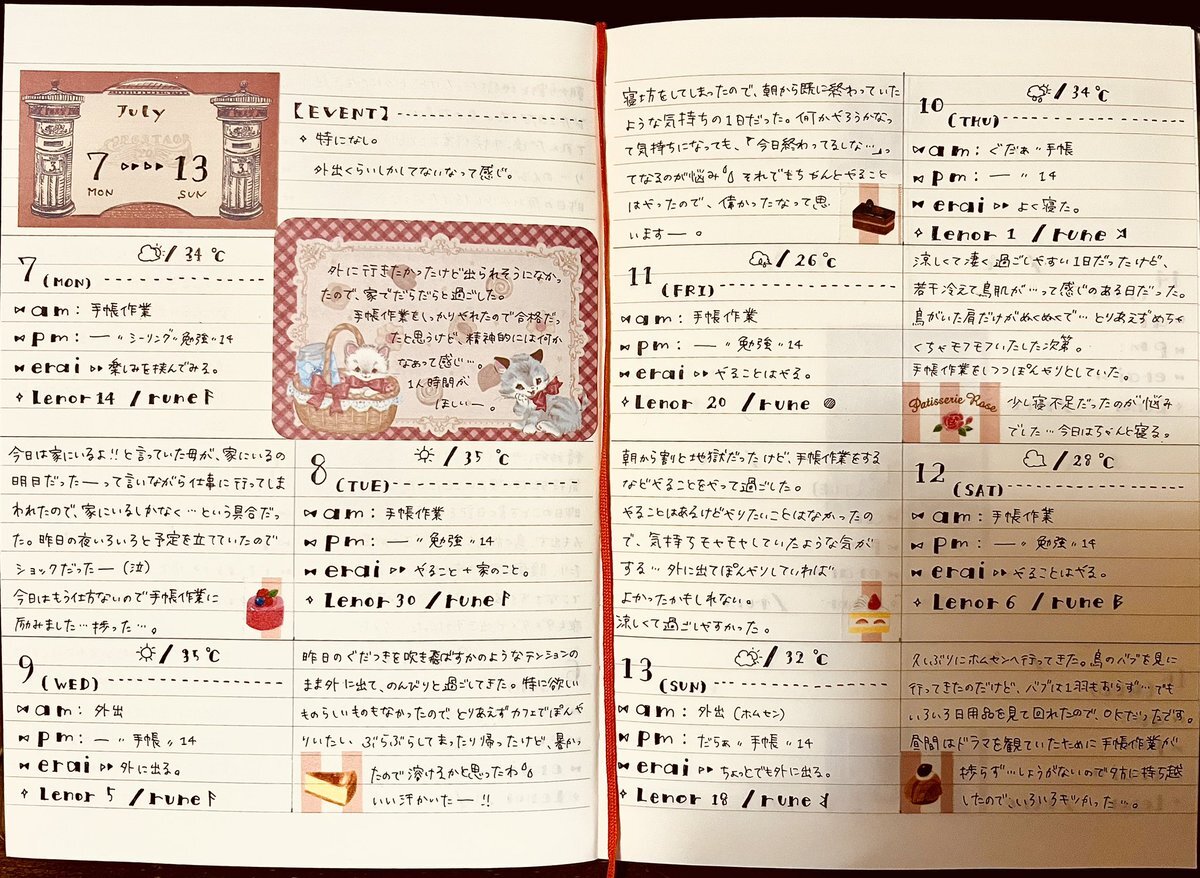 July
7 ▷▷▷▷ 13
MON SUN
【EVENT】
✧ 特になし。
外出くらいしかしてないなって感じ。
7 (MON)
/ 34 ℃
am : 手帳作業
pm : ー 〃 シーリング〃勉強〃14
erai ▷▷ 楽しみを挟んでみる。
✧ Lenor 14 / rune ᚨ
外に行きたかったけど出られそうになか
ったので、家でだらだらと過ごした。
手帳作業をしっかりやれたので合格だっ
たと思うけど、精神的には何か
なぁって感じ…。
1人時間が
ほしいー。
今日は家にいるよ!!と言っていた母が、家にいるの
明日だったーって言いながら仕事に行ってしま
われたので、家にいるしかなく…という具合だっ
た。昨日の夜いろいろと予定を立てていたので
ショックだったー(泣)
今日はもう仕方ないので手帳作業に
励みました…捗った…。
8 (TUE)
/ 35 ℃
am : 手帳作業
pm : ー 〃 勉強〃14
erai ▷▷ やること+家のこと。
✧ Lenor 30 / rune ᚨ
9 (WED)
/ 35 ℃
am : 外出
pm : ー 〃 手帳〃14
erai ▷▷ 外に出る。
✧ Lenor 5 / rune ᚨ
昨日のぐだつきを吹き飛ばすかのようなテンションの
まま外に出て、のんびりと過ごしてきた。特に欲しい
ものらしいものもなかったので、とりあえずカフェでぼんや
りいたい、ぶらぶらしてまったり帰ったけど、暑かっ
たので溶けるかと思ったわ
いい汗かいたー!!
寝坊をしてしまったので、朝から既に終わっていた
ような気持ちの1日だった。何かやろうかなっ
て気持ちになっても、「今日終わってるしな…」っ
てなるのが悩み それでもちゃんとやること
はやったので、偉かったなって思
いますー。
10 (THU)
/ 34 ℃
am : ぐだぁ〃手帳
pm : ー 〃 14
erai ▷▷ よく寝た。
✧ Lenor 1 / rune
11 (FRI)
/ 26 ℃
am : 手帳作業
pm : ー 〃 勉強〃14
erai ▷▷ やることはやる。
✧ Lenor 20 / rune
涼しくて凄く過ごしやすい1日だったけど、
若干冷えて鳥肌が…って感じのある日だった。
鳥がいた肩だけがぬくぬくで…とりあえずめちゃ
くちゃモフモフいたした次第。
手帳作業をしつつぼんやりとしていた。
Patisserie Rose
少し寝不足だったのが悩み
でした…今日はちゃんと寝る。
朝から割と地獄だったけど、手帳作業をする
などやることをやって過ごした。
やることはあるけどやりたいことはなかったの
で、気持ちモヤモヤしていたような気が
する…外に出てぼんやりしていれば
よかったかもしれない。
涼しくて過ごしやすかった。
12 (SAT)
/ 28 ℃
am : 手帳作業
pm : ー 〃 勉強〃14
erai ▷▷ やることはやる。
✧ Lenor 6 / rune ᛒ
13 (SUN)
/ 32 ℃
am : 外出(ホムセン)
pm : だらぁ〃手帳〃14
erai ▷▷ ちょっとでも外に出る。
✧ Lenor 18 / rune
久しぶりにホムセンへ行ってきた。鳥のバブを見に
行ってきたのだけど、バブは1羽もおらず…でも
いろいろ日用品を見て回れたので、OKだったです。
昼間はドラマを観ていたために手帳作業が
捗らず…しょうがないので夕方に持ち越
したので、いろいろキツかった…。